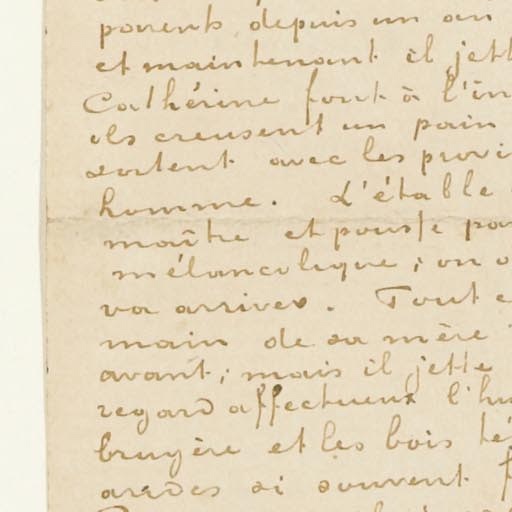 parents depuis un an
et maintenant il jett
Cathérine font à l'in
ils creusent un pain
sortent avec les provi
homme. L'étable
maître et pousse pa
mélancolique ; on o
va arriver. Tout e
main de sa mère
avant ; mais il jette
regard affectueux l'hu
bruyère et les bois té
ardes si souvent f